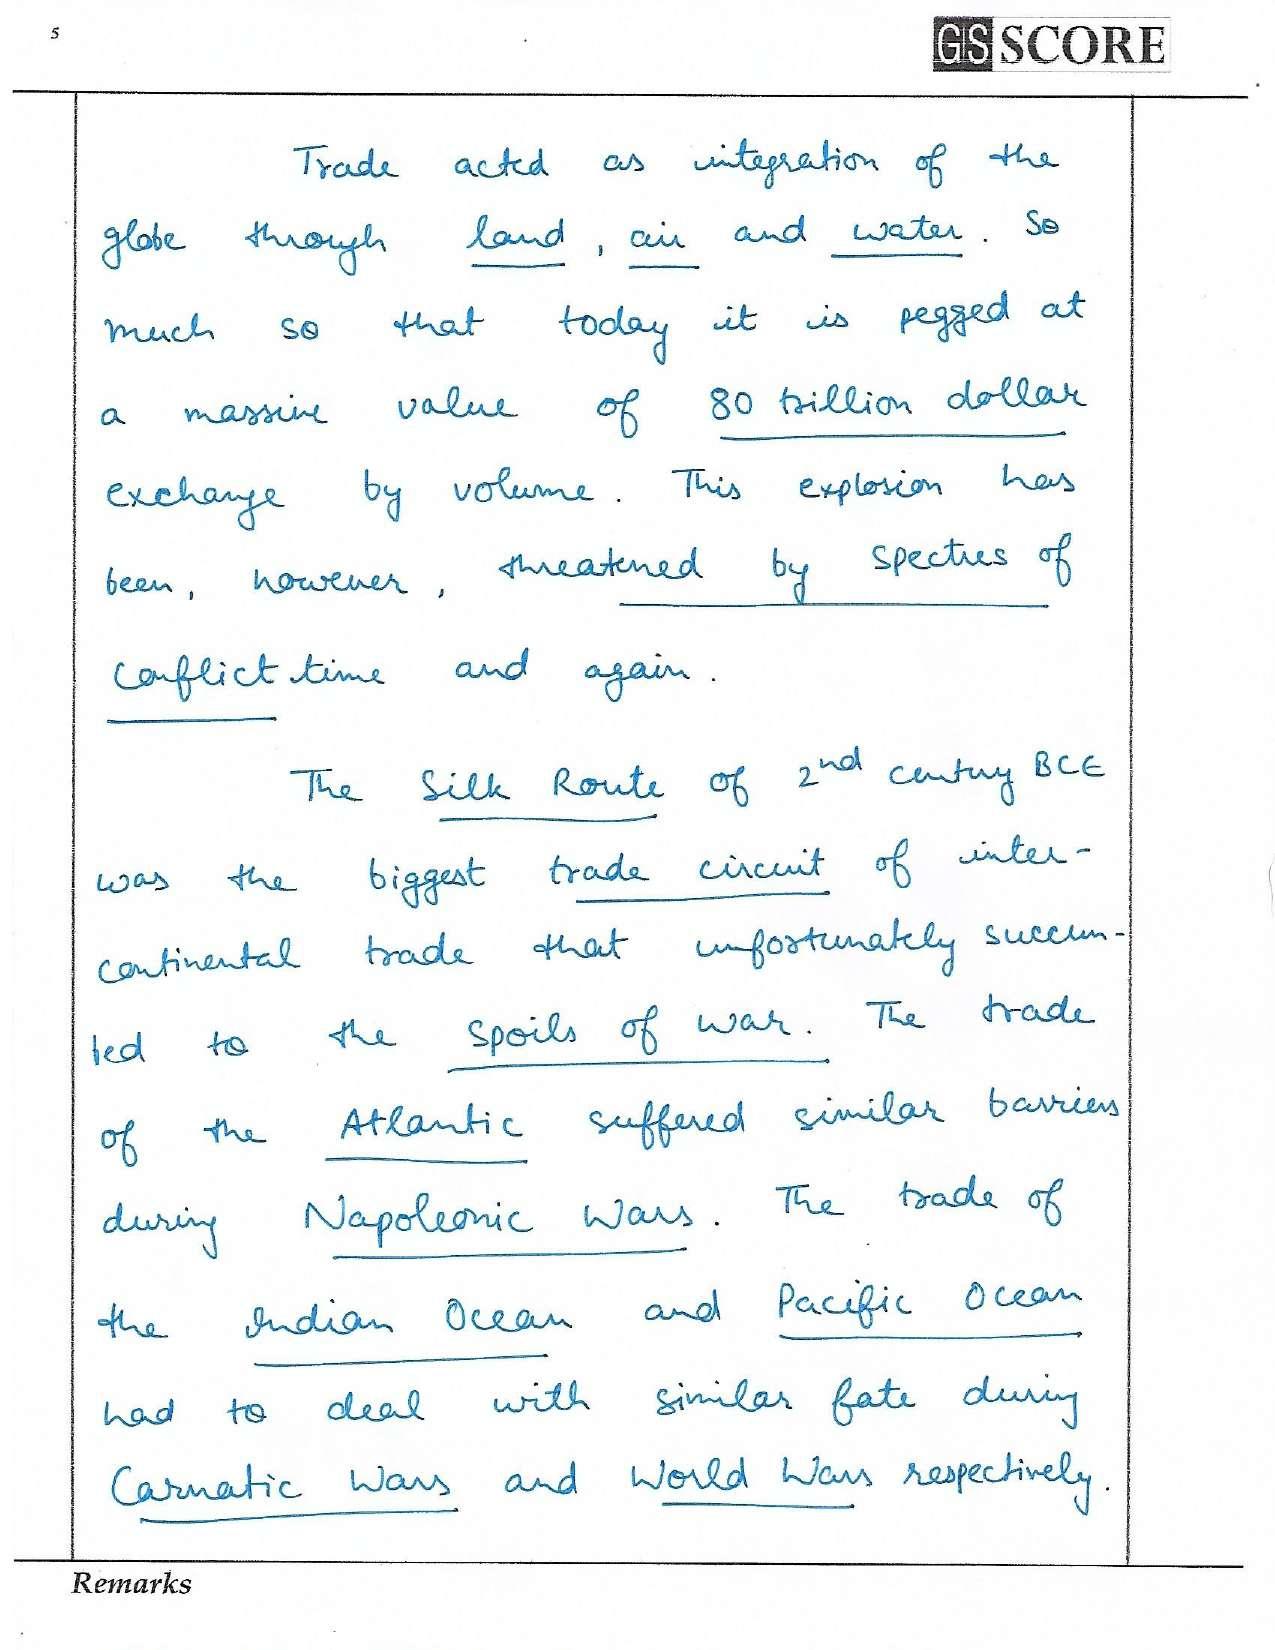 5
GS SCORE
Trade acted as integration of the
globe through land, air and water. So
much so that today it is pegged at
a massive value of 80 trillion dollar
exchange by volume. This explosion has
been, however, threatened by spectres of
conflict time and again.
The Silk Route of 2nd century BCE
was the biggest trade circuit of inter-
continental trade that unfortunately succum-
bed to the spoils of war. The trade
of the Atlantic suffered similar barriers
during Napoleonic Wars. The trade of
the Indian Ocean and Pacific Ocean
had to deal with similar fate during
Carnatic Wars and World Wars respectively.
Remarks